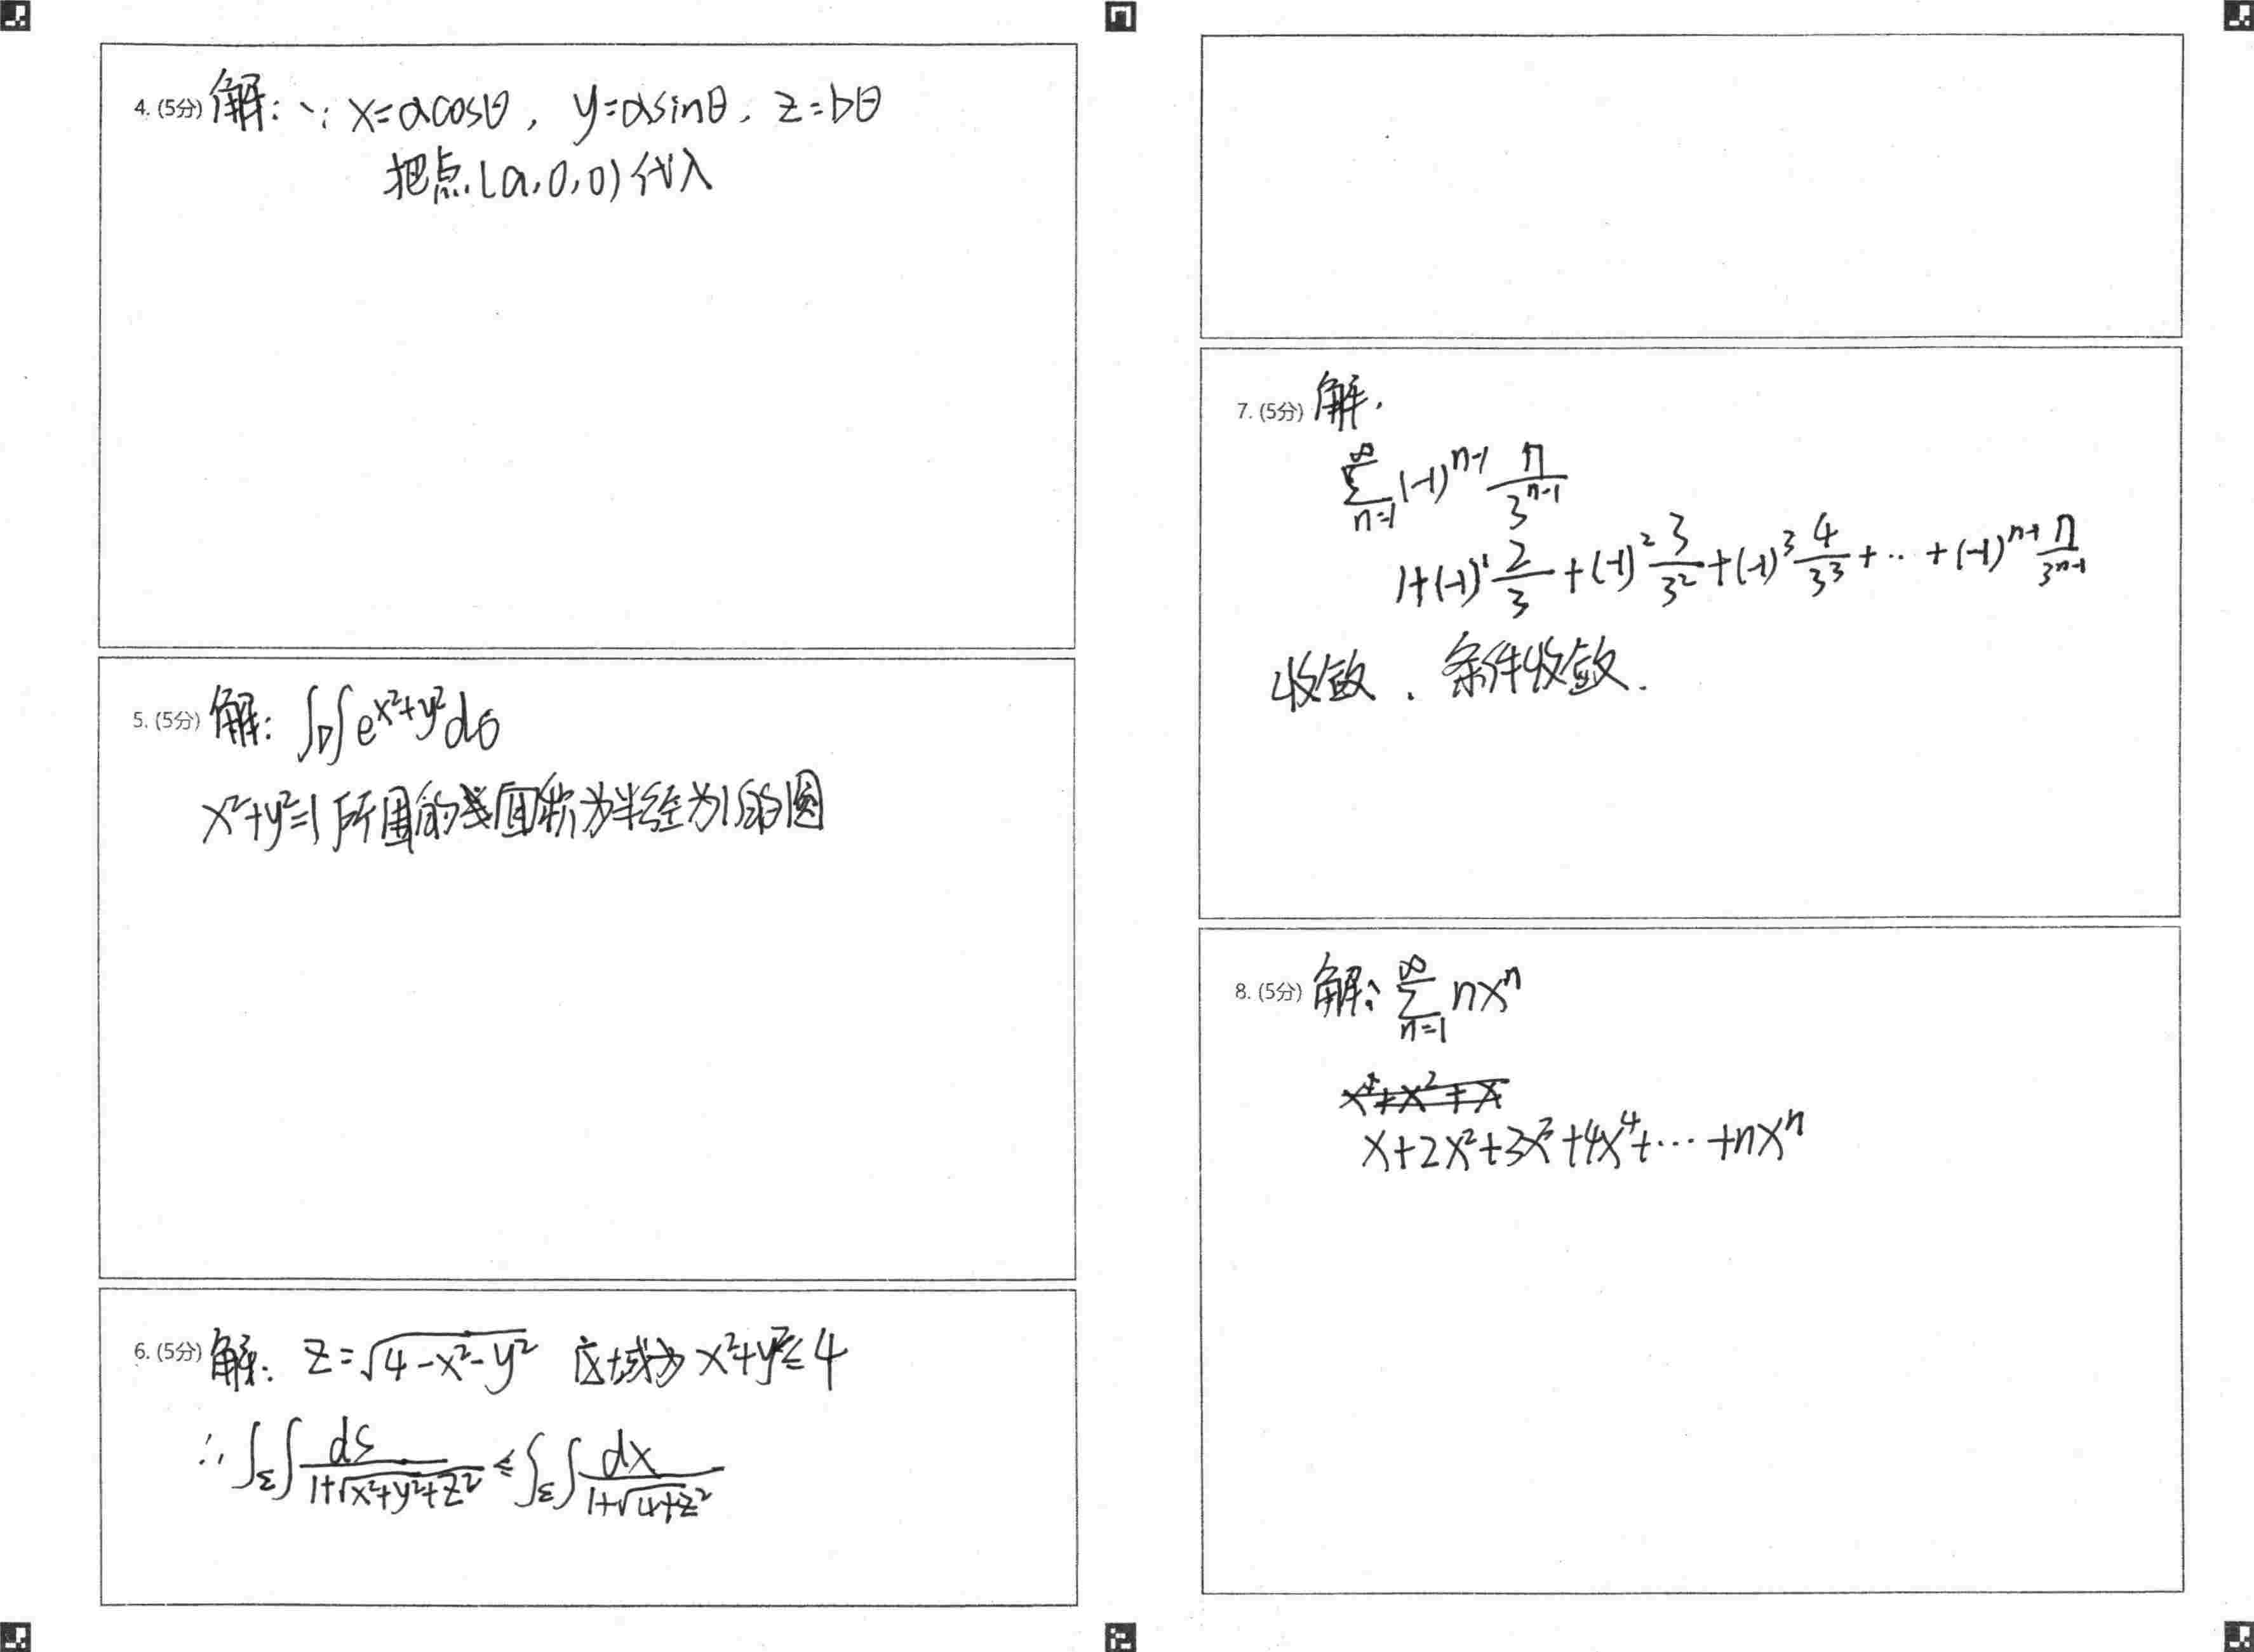 4. (5分) 解: ∵ x=acosθ, y=asinθ, z=bθ
把点(a,0,0)代入
5. (5分) 解: ∬_D e^{x²+y²}dσ
x²+y²=1所围的面积为半径为1的圆
6. (5分) 解: z=√(4-x²-y²) 区域为 x²+y²≤4
∴ ∬_Σ dS/(1+√(x²+y²+z²)) ≤ ∬_Σ dx/(1+√(4+z²))
7. (5分) 解.
∑_{n=1}^{∞} (-1)^{n-1} n/3^{n-1}
1+(-1)¹ 2/3 + (-1)² 3/3² + (-1)³ 4/3³ + ‥ + (-1)^{n-1} n/3^{n-1}
收敛. 条件收敛.
8. (5分) 解: ∑_{n=1}^{∞} nxⁿ
x+2x²+3x³+4x⁴+⋯+nxⁿ